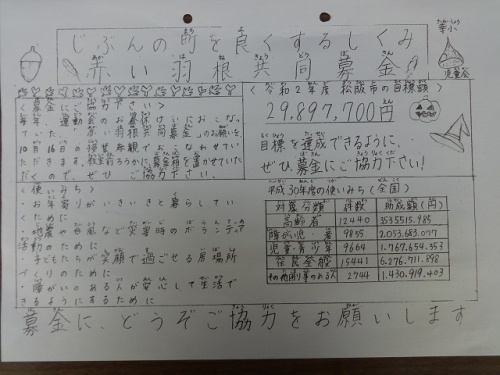 じぶんの町を良くするしくみ
赤い羽根共同募金
華小
児童会
<募金にご協力下さい>
毎年、運動会のお昼休けいにおこなっ
ていた「赤い羽根共同募金」のお願いを、
10月16日の授業参観でおこなわせてい
ただきます。教室前ろうかに募金箱を置かせていた
だくので、ぜひ、ご協力下さい。
<使いみち>
・お年寄りがいきいきと暮らしてい
くために
・地震や台風など災害時のボランティア
活動のために
・子どもたちが笑顔で過ごせる居場所
づくりのために
・障がいのある人が安心して生活で
きるようにするために
<令和2年度 松阪市の目標額>
29,897,700円
目標を達成できるように、
ぜひ募金にご協力下さい!
平成30年度の使いみち(全国)
対象分類 件数 助成額(円)
高齢者 12440 3535515.985
障がい児・者 9855 2.053.683.077
児童・青少年 9664 1.767.654.353
住民全般 15441 6.276.711.898
その他困り事のある人 2744 1.430.919.403
募金に、どうぞご協力をお願いします